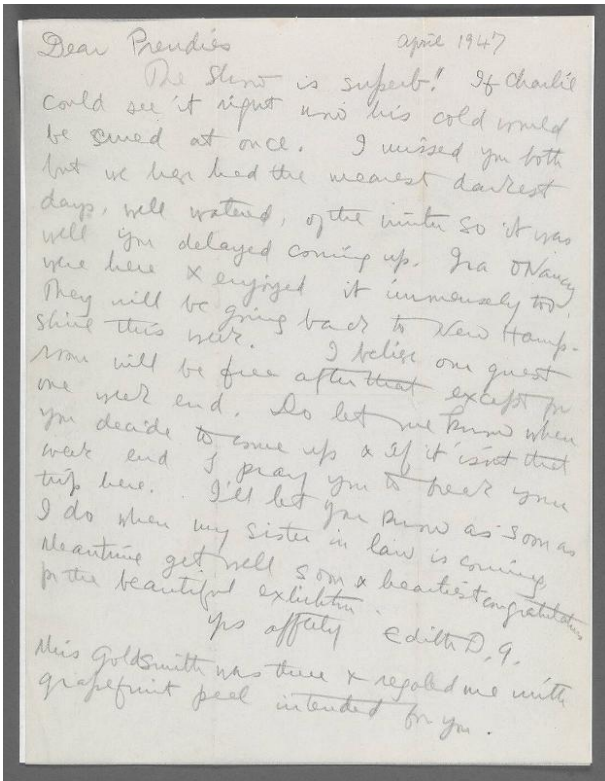 Dear Prendies April 1947
The Show is superb! If Charlie
could see it right now his cold would
be cured at once. I missed you both
but we have had the meanest darkest
days, well watered, of the winter so it was
well you delayed coming up. Ira & Nancy
were here & enjoyed it immensely too.
They will be going back to New Hamp-
shire this week. I believe our guest
room will be free after that except for
one week end. Do let me know when
you decide to come up & if it isn't that
week end I pray you to break your
trip here. I'll let you know as soon as
I do when my sister in law is coming.
Meantime get well soon & heartiest congratulations
for the beautiful exhibition.
Yrs affly Edith D. G.
Miss Goldsmith was there & regaled me with
grapefruit peel intended for you.